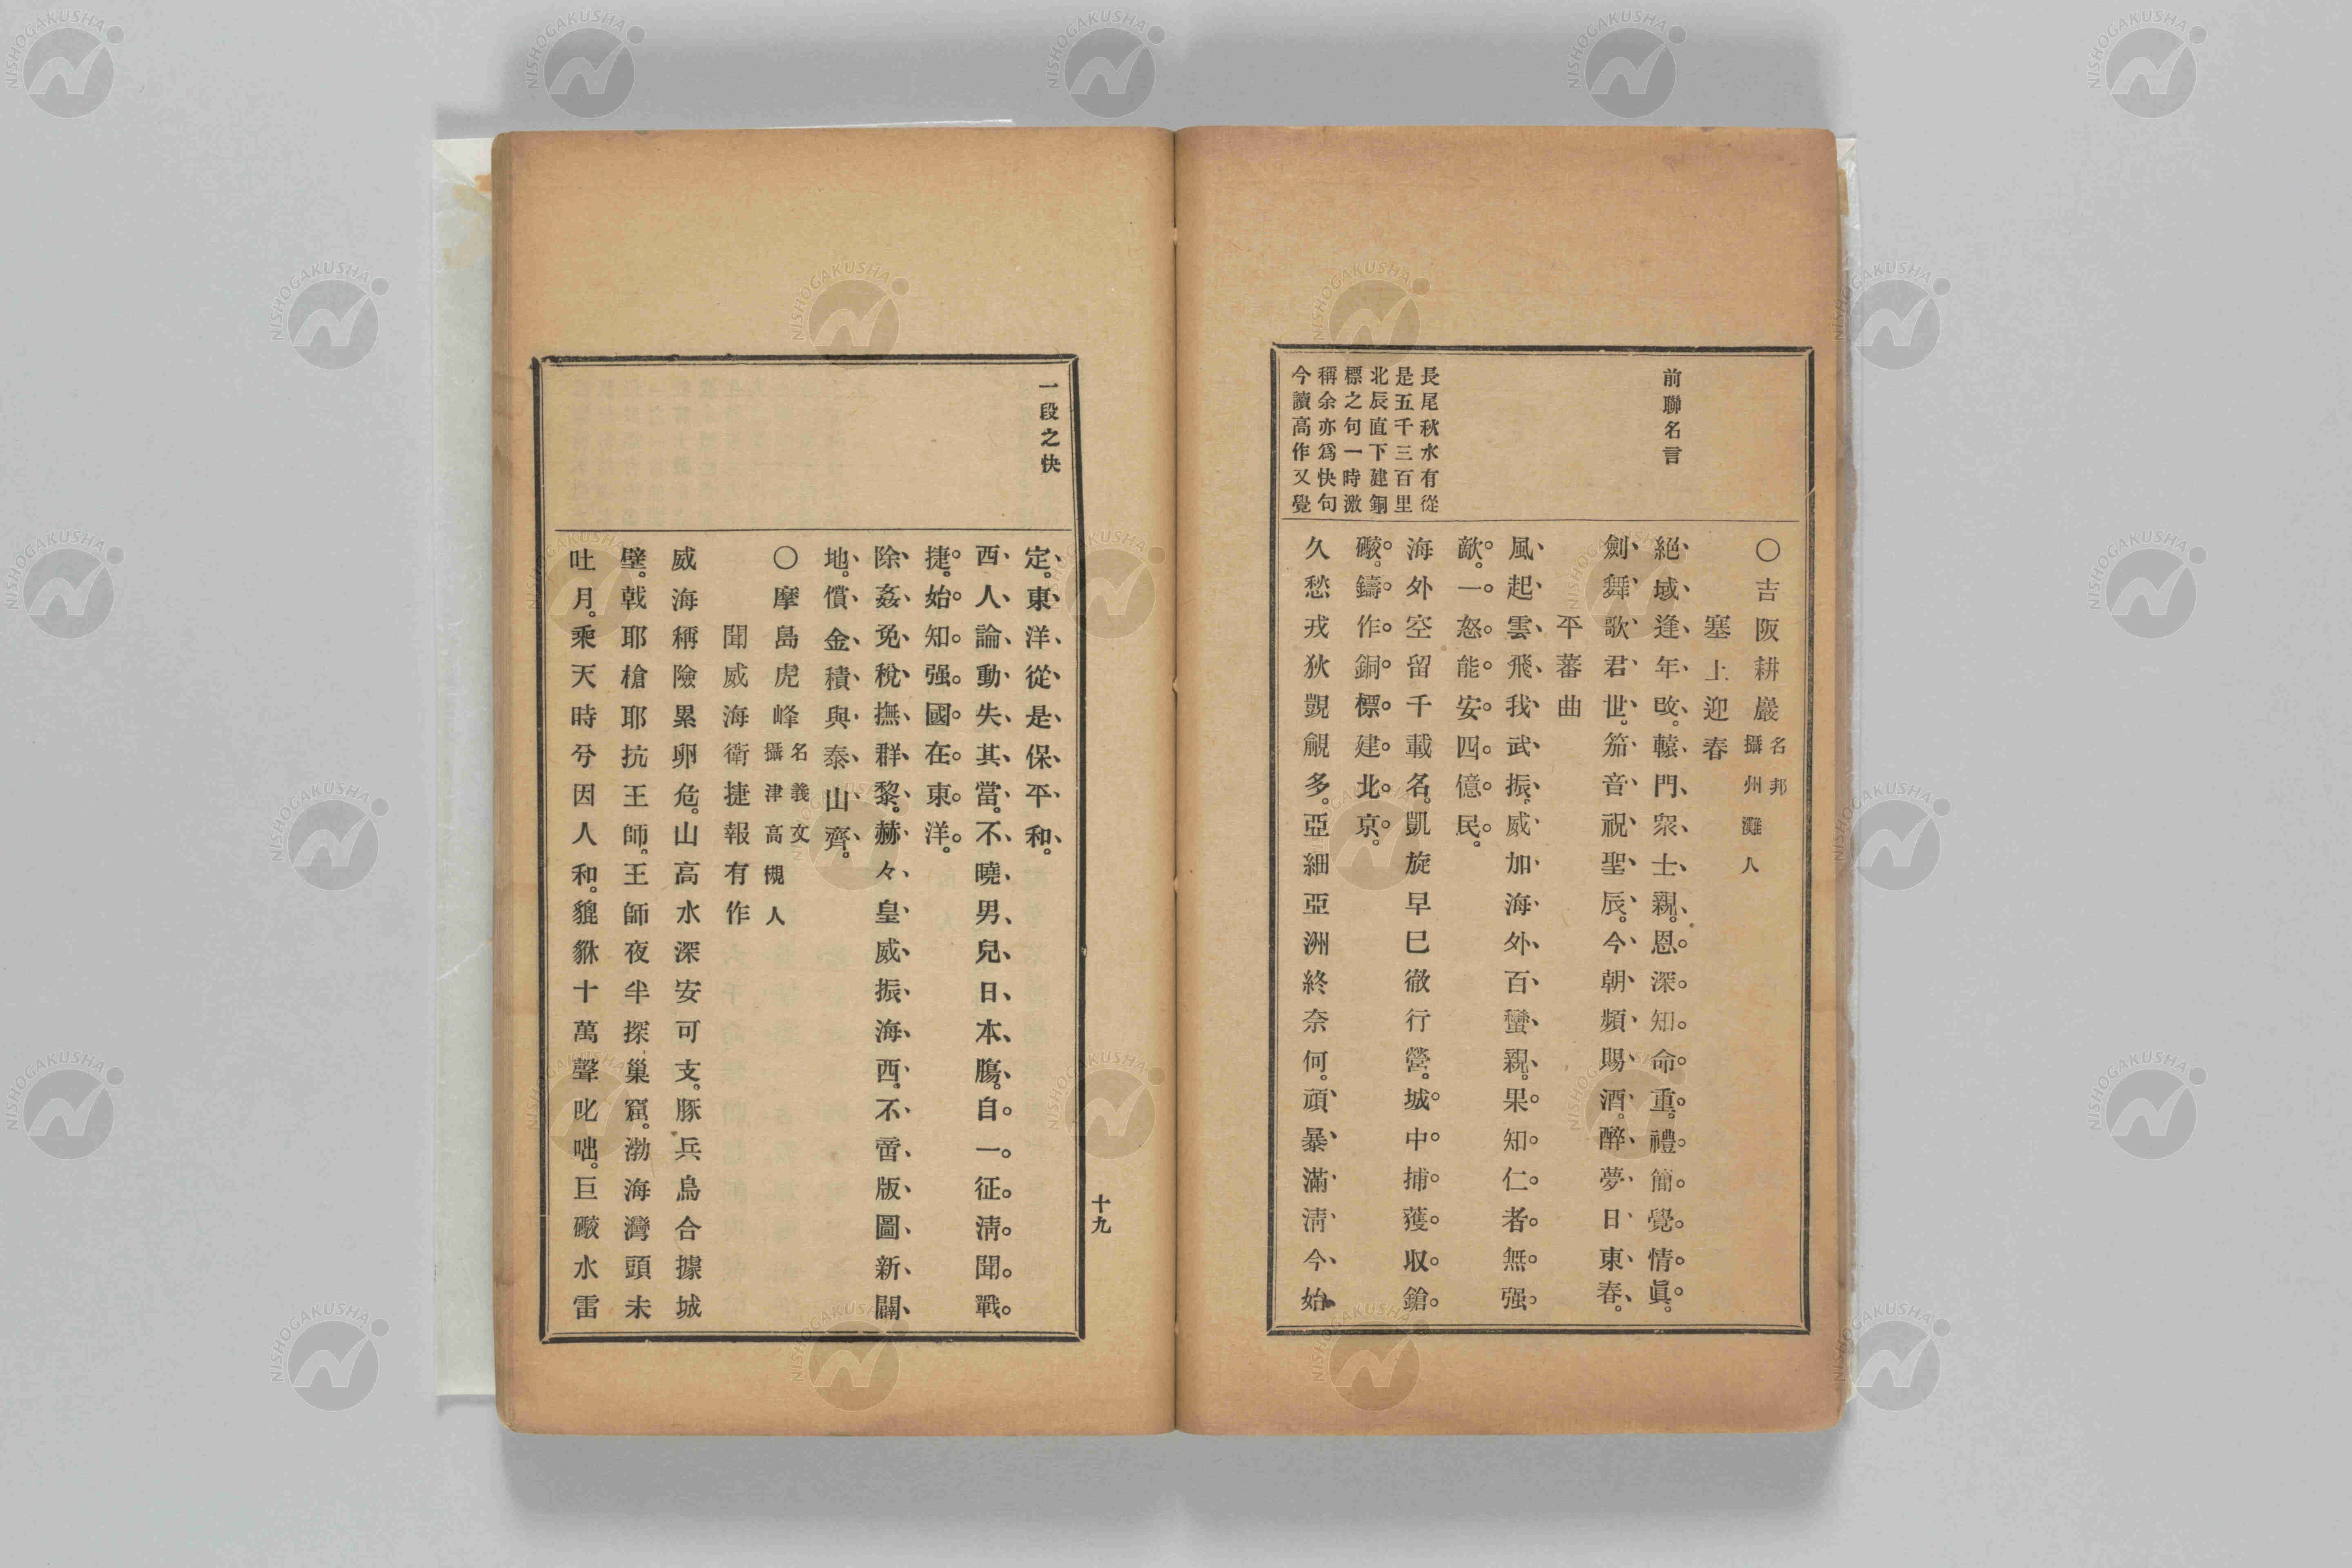 前聯名言
長尾秋水有從
是五千三百里
北辰直下建銅
標之句一時激
稱余亦爲快句
今讀高作又覺
〇吉阪耕巖名邦攝州灘人
塞上迎春
絕域逢年改。轅門衆士親。恩深知命重。禮簡覺情眞。
劍舞歌君世。笳音祝聖辰。今朝頻賜酒。醉夢日東春。
平蕃曲
風起雲飛我武振。威加海外百蠻親。果知仁者無强
敵。一怒能安四億民。
海外空留千載名。凱旋早已徹行營。城中捕獲収鎗
礮。鑄作銅標建北京。
久愁戎狄覬覦多。亞細亞洲終奈何。頑暴滿淸今始
一段之快
定。東洋從是保平和。
西人論動失其當。不曉男兒日本膓。自一征淸聞戰
捷。始知强國在東洋。
除姦免稅撫群黎。赫々皇威振海西。不啻版圖新闢
地。償金積與泰山齊。
〇摩島虎峰名義文攝津高槻人
聞威海衛捷報有作
威海稱險累卵危。山高水深安可支。豚兵烏合據城
壁。戟耶槍耶抗王師。王師夜半探巢窟。渤海灣頭未
吐月。乘天時兮因人和。貔貅十萬聲叱咄。巨礮水雷
十九
NISHOGAKUSHA